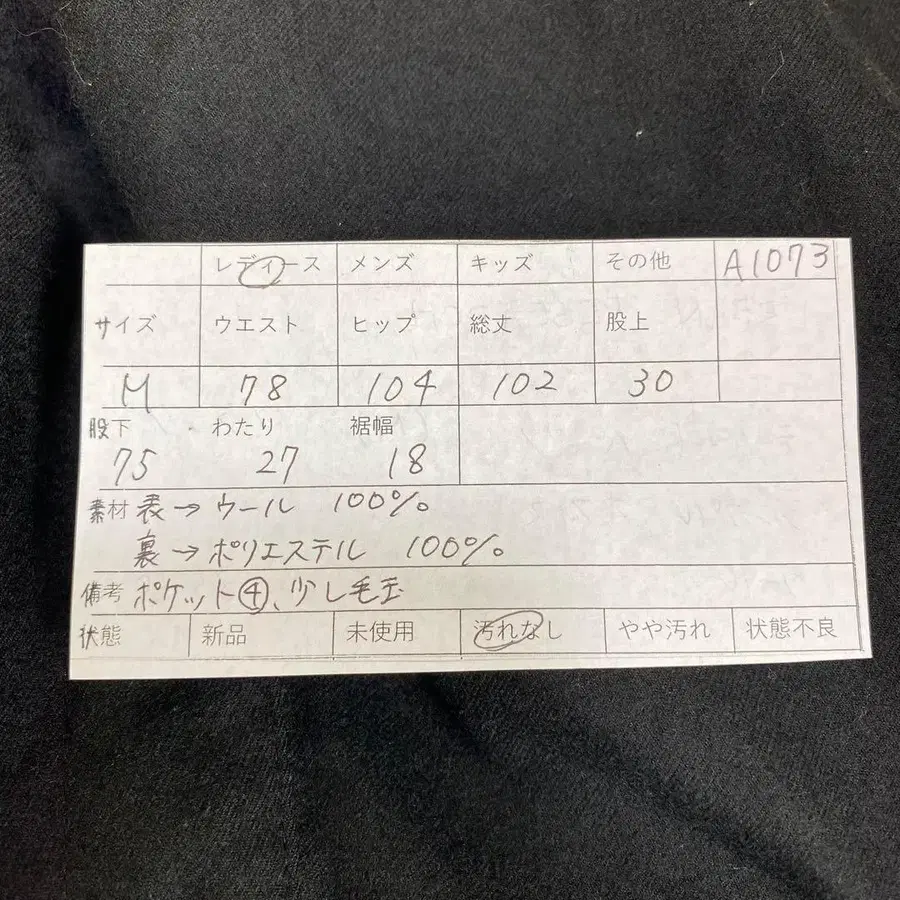 レディース メンズ キッズ その他 A1073
サイズ ウエスト ヒップ 総丈 股上
M 78 104 102 30
股下 わたり 裾幅
75 27 18
素材 表→ウール 100%
裏→ポリエステル 100%
備考 ポケット④、少し毛玉
状態 新品 未使用 汚れなし やや汚れ 状態不良